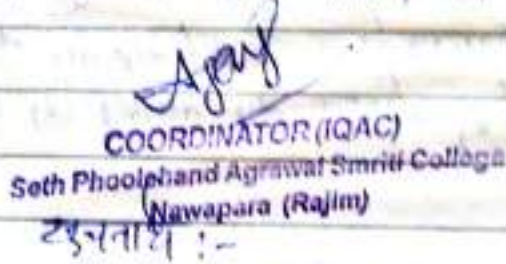 COORDINATOR (IQAC)
Seth Phoolchand Agrawal Smriti College
Nawapara (Rajim)
:-